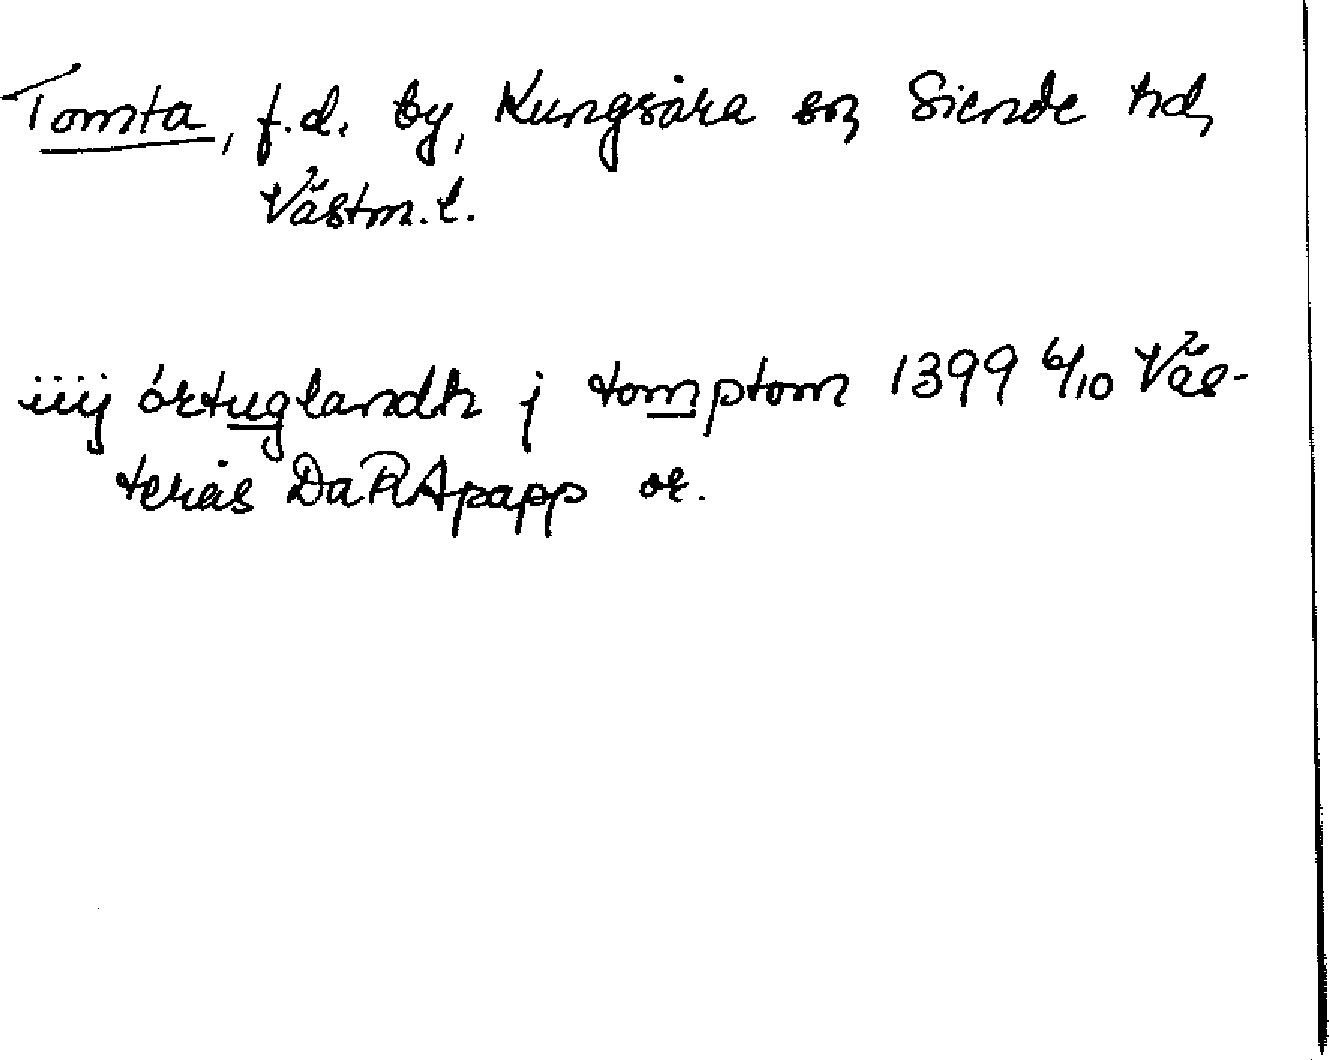 Tomta, f.d. by, Kungsåra sn, Siende hd,
Västm. l.
iiij örtuglandh j tomptom 1399 6/10 Väs-
terås DaRApapp or.